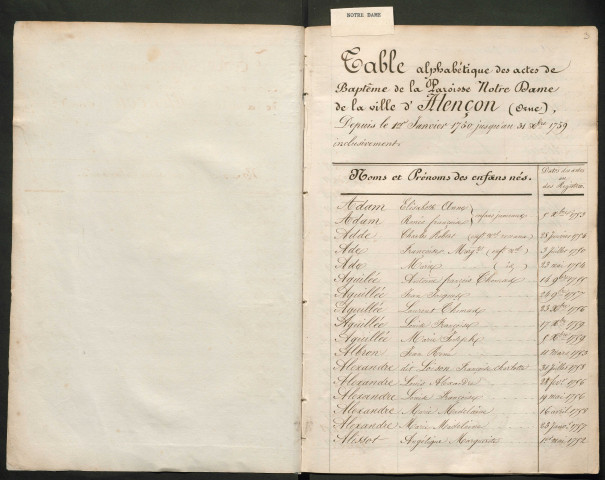 NOTRE DAME
3
Table alphabétique des actes de
Baptême de la Paroisse Notre Dame
de la ville d'Alençon (Orne),
Depuis le 1er Janvier 1750 jusqu'au 31 Xbre 1759
inclusivement.
Noms et Prénoms des enfans nés. Dates des actes
ou
des Registres
Adam Elisabeth Anne
Adam Renée françoise enfans jumeaux 1753
Adde Charles Robert 28 janvier 1756
Ade Françoise Margte 3 juillet 1750
Ado Marie 23 mai 1754
Aguilée Antoine françois Thomas 16 9bre
Aguillée Jean Jacques 24 9bre 1757
Aguillée Laurent Thomas 23 Xbre 1756
Aguillée Louis François 17 1759
Aguillée Marie 1759
Albron Jean René 11 mars 1750
Alexandre dit Loison François Charlotte 31 juillet 1758
Alexandre Louis Alexandre 28 fer 1756
Alexandre Louise Françoise 19 mai 1756
Alexandre Marie Madelaine 16 avril 1758
Alexandre Marie Madelaine 23 janv. 1757
Alissot Angélique Marguerite 1er mai 1752